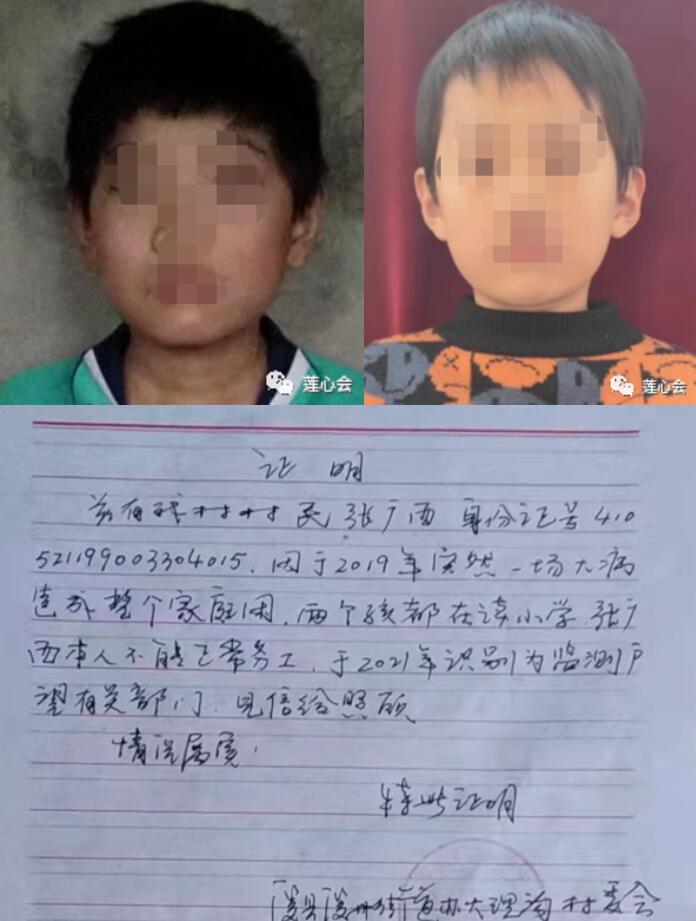 莲心会
莲心会
证明
兹有我村村民张广西身份证号410
521199003304015.因于2019年突然一场大病
造成整个家庭困,两个孩都在读小学.张广
西本人不能正常务工,于2021年识别为监测户
望有关部门.见信给照顾
情况属实.
特此证明
县 州街道办大理沟村委会